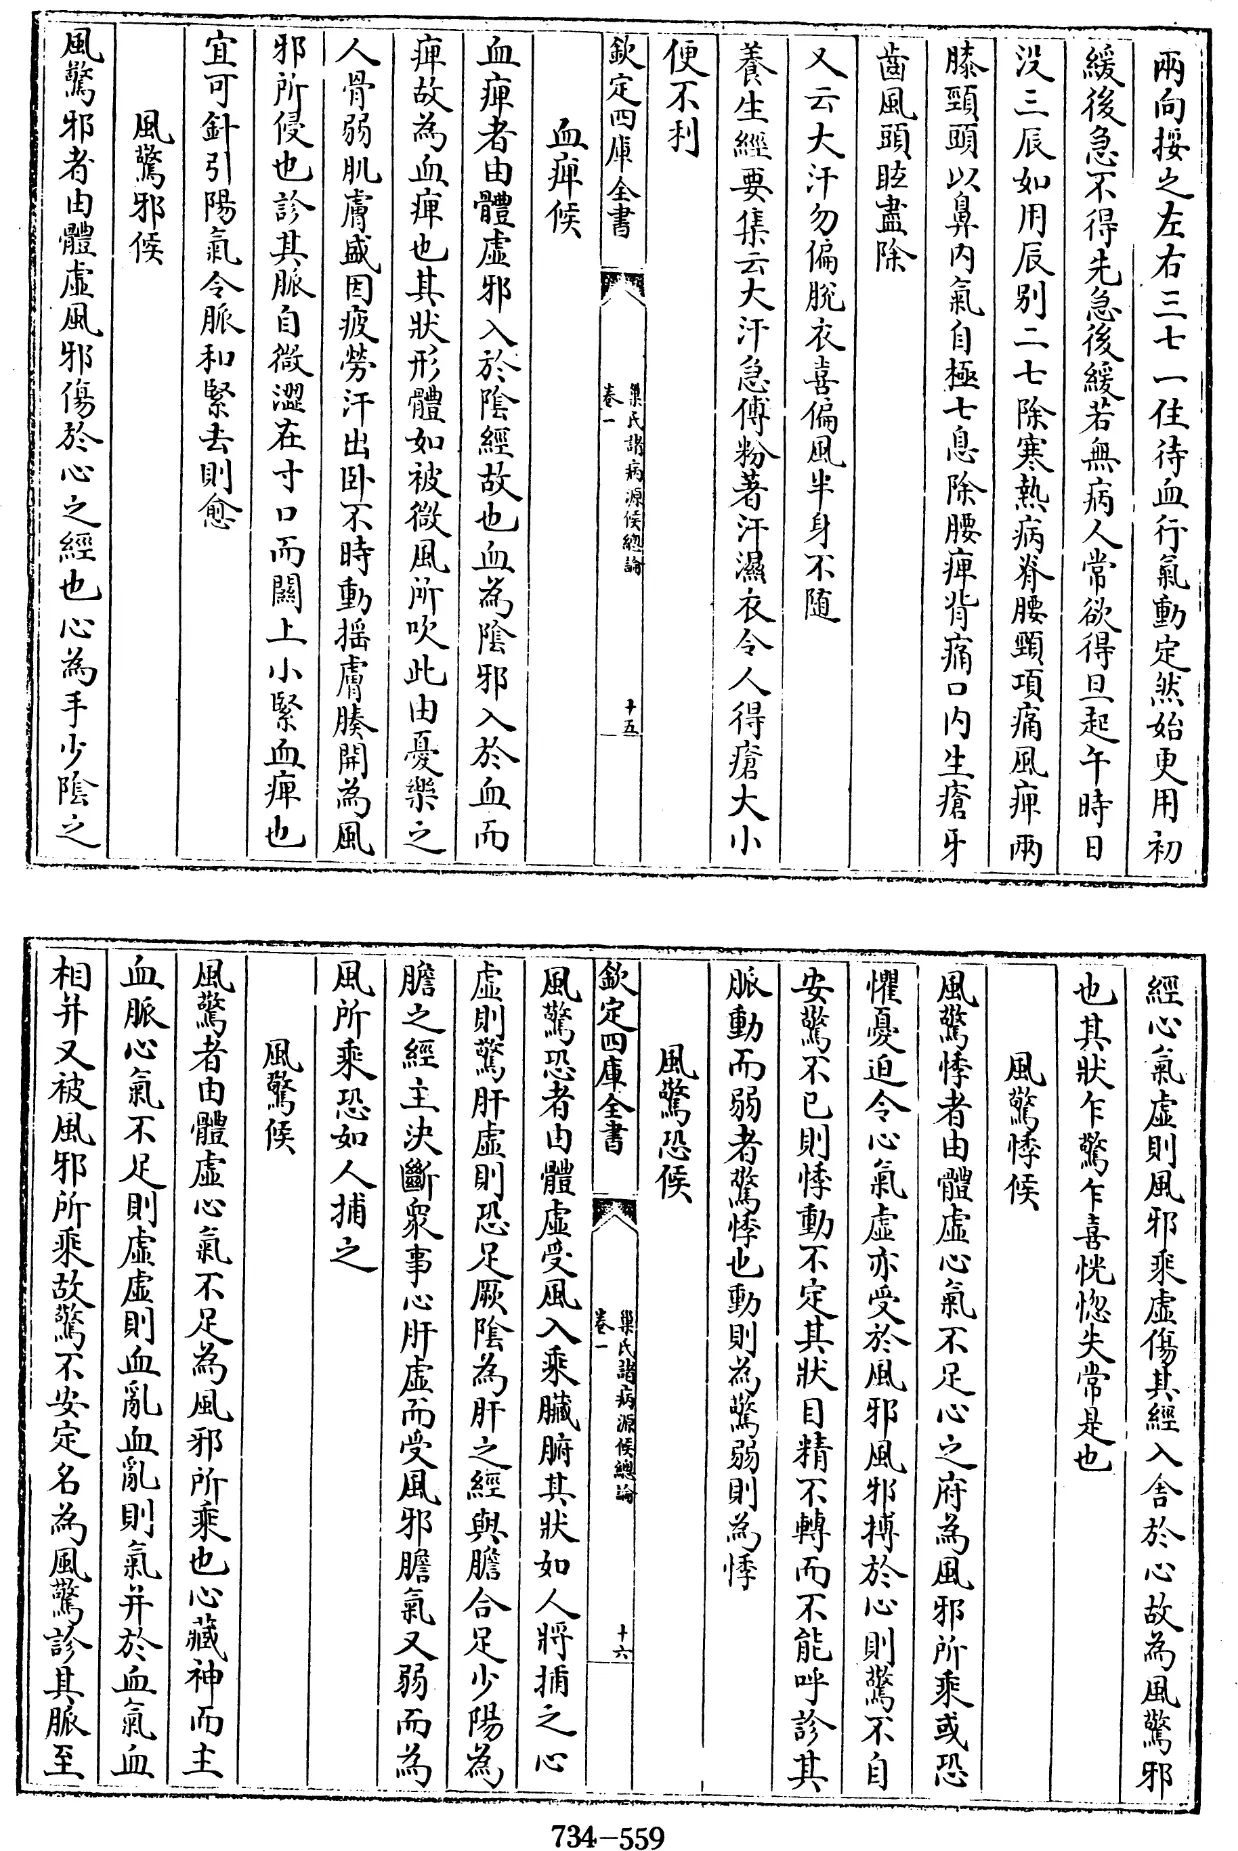 兩向挼之左右三七一住待血行氣動定然始更用初
緩後急不得先急後緩若無病人常欲得旦起午時日
没三辰如用辰别二七除寒熱病脊腰頸項痛風痺兩
膝頸頭以鼻内氣自極七息除腰痺背痛口内生瘡牙
齒風頭眩盡除
又云大汗勿偏脫衣喜偏風半身不随
養生經要集云大汗急傅粉著汗濕衣令人得瘡大小
便不利
欽定四庫全書
巢氏諸病源候總論
卷一
十五
血痺候
血痺者由體虛邪入於陰經故也血為陰邪入於血而
痺故為血痺也其狀形體如被微風所吹此由憂樂之
人骨弱肌膚盛因疲勞汗出卧不時動揺膚腠開為風
邪所侵也診其脈自微澀在寸口而關上小緊血痺也
宜可針引陽氣令脈和緊去則愈
風驚邪候
風驚邪者由體虛風邪傷於心之經也心為手少陰之
經心氣虛則風邪乘虛傷其經入舍於心故為風驚邪
也其狀乍驚乍喜恍惚失常是也
風驚悸候
風驚悸者由體虛心氣不足心之府為風邪所乘或恐
懼憂迫令心氣虛亦受於風邪風邪搏於心則驚不自
安驚不已則悸動不定其狀目精不轉而不能呼診其
脈動而弱者驚悸也動則為驚弱則為悸
風驚恐候
欽定四庫全書
巢氏諸病源候總論
卷一
十六
風驚恐者由體虛受風入乘臟腑其狀如人將捕之心
虛則驚肝虛則恐足厥陰為肝之經與膽合足少陽為
膽之經主決斷衆事心肝虛而受風邪膽氣又弱而為
風所乘恐如人捕之
風驚候
風驚者由體虛心氣不足為風邪所乘也心藏神而主
血脈心氣不足則虛虛則血亂血亂則氣并於血氣血
相并又被風邪所乘故驚不安定名為風驚診其脈至
734-559